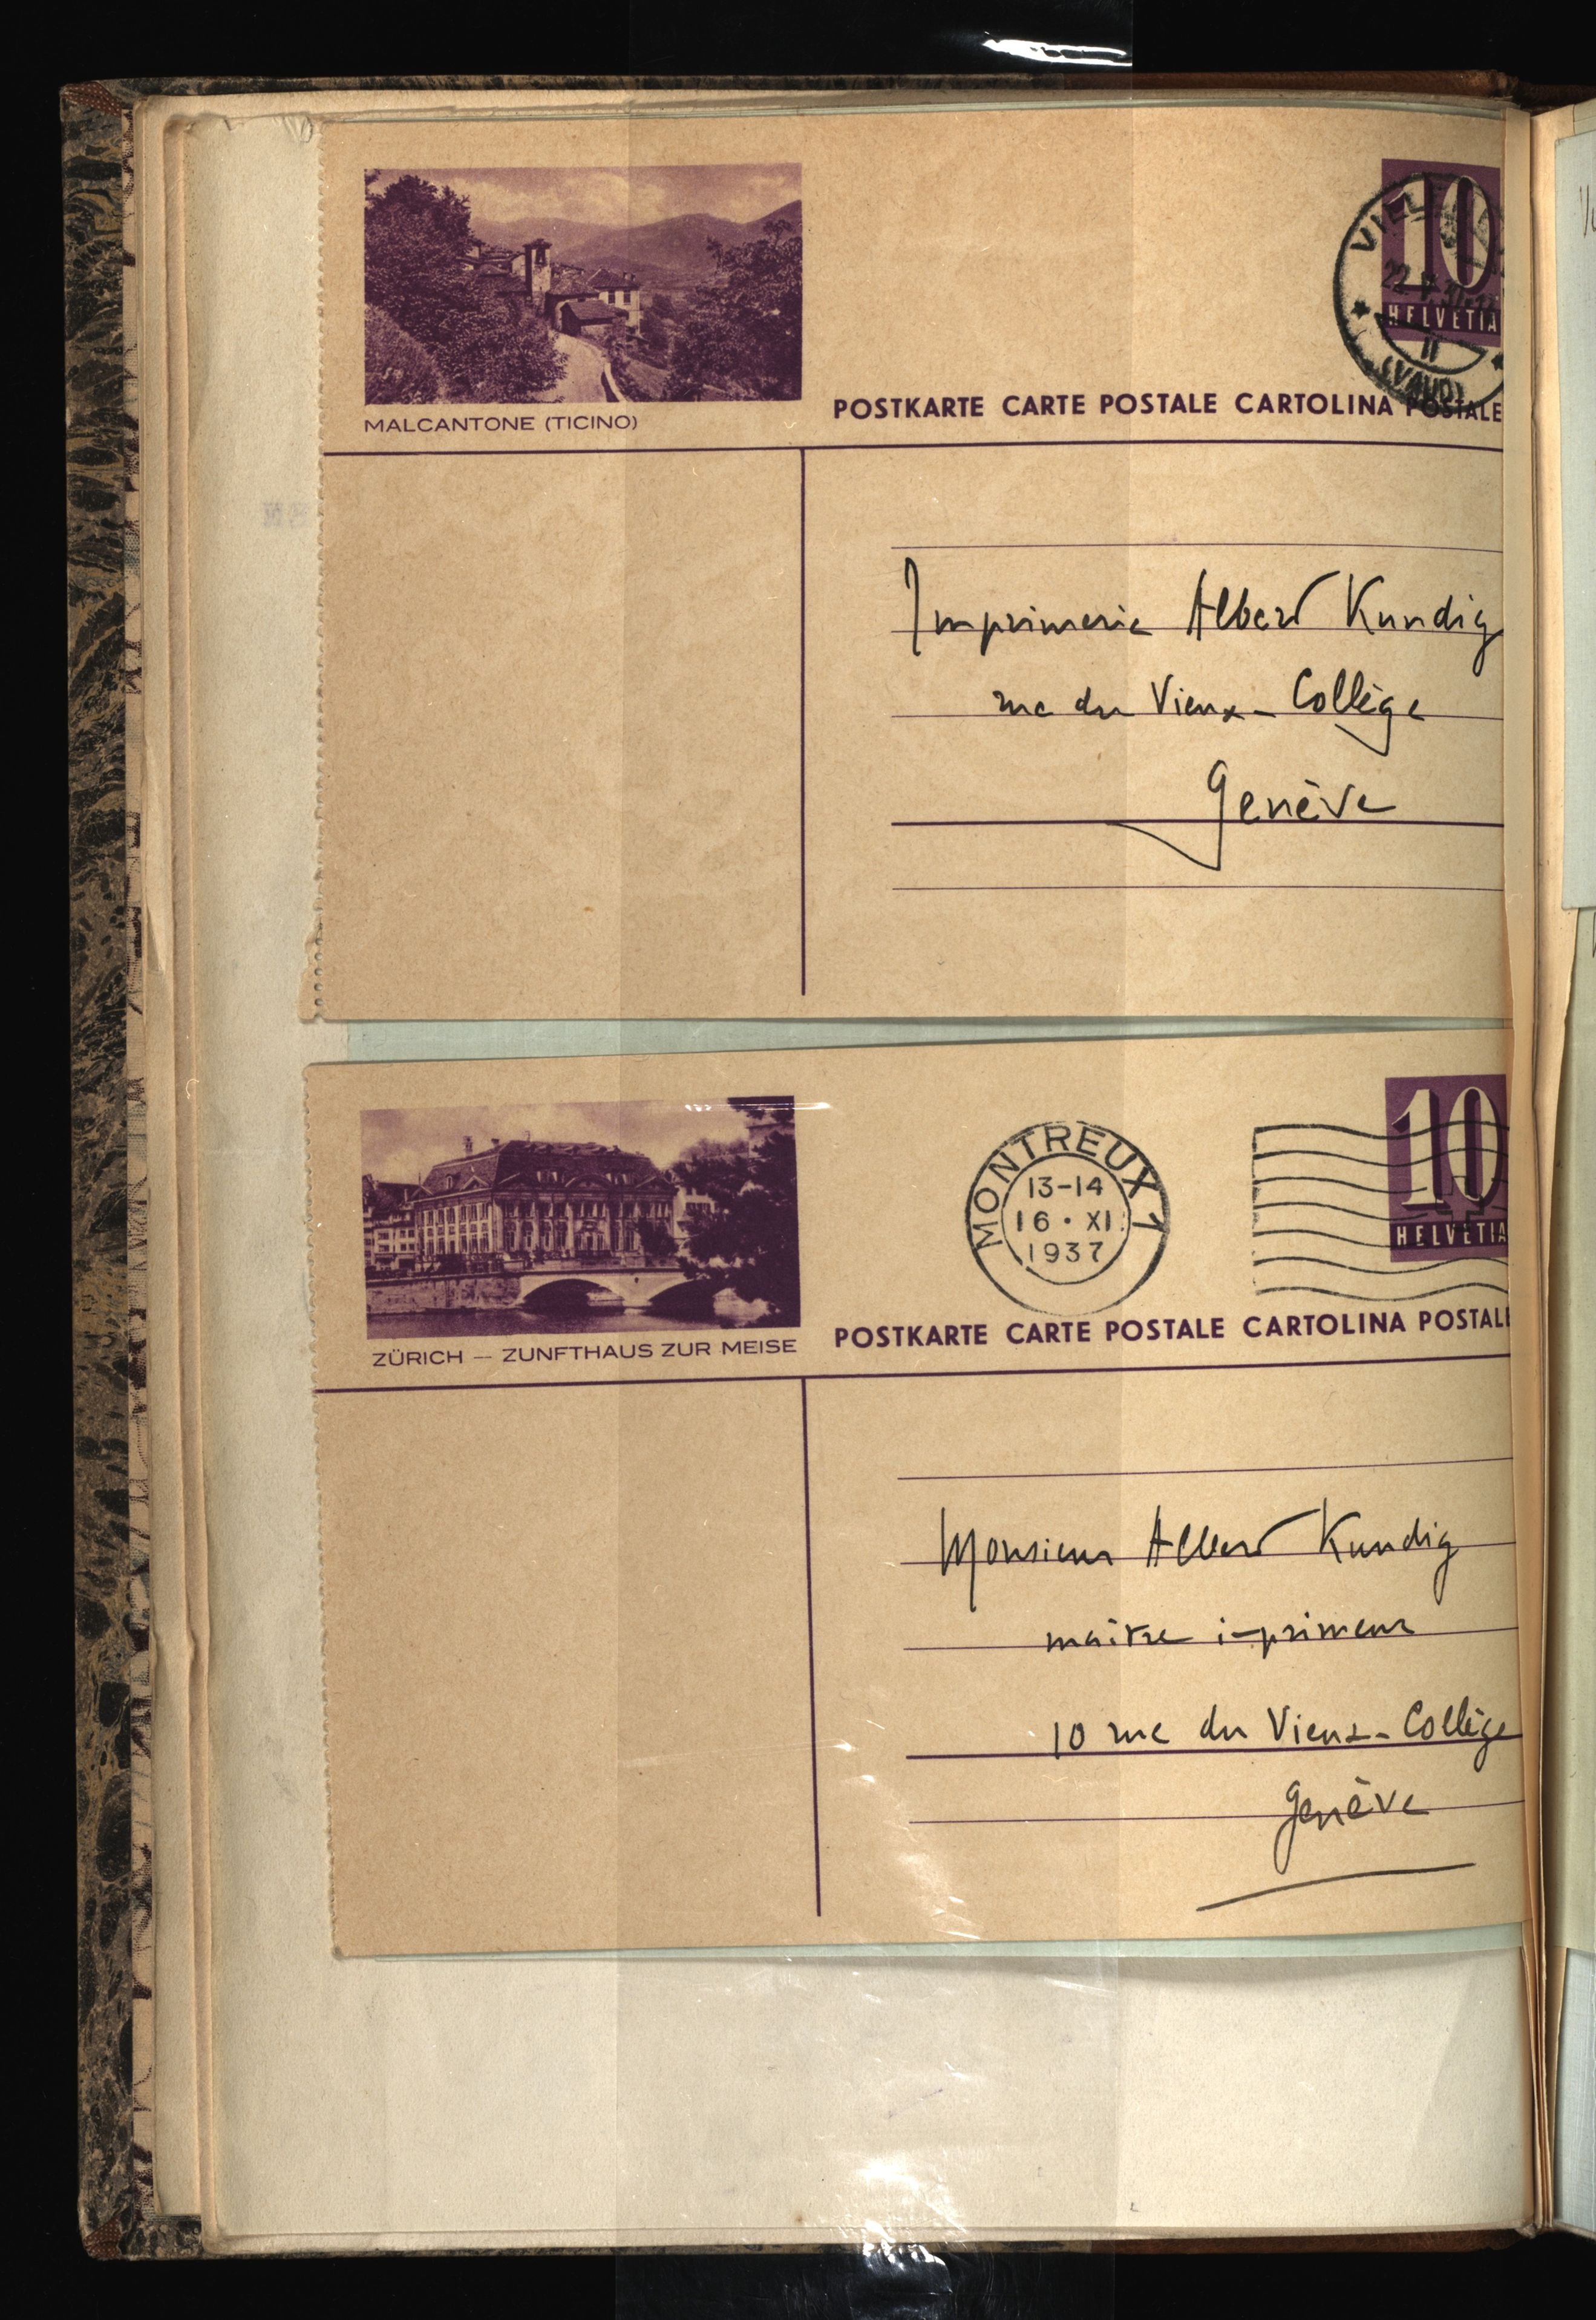 10
HELVETIA
II
(VAUD)
MALCANTONE (TICINO)
POSTKARTE CARTE POSTALE CARTOLINA POSTALE
Imprimerie Albert Kundig
rue du Vieux-Collège
Genève
MONTREUX 1
13-14
16 • XI
1937
10
HELVETIA
ZÜRICH — ZUNFTHAUS ZUR MEISE
POSTKARTE CARTE POSTALE CARTOLINA POSTALE
Monsieur Albert Kundig
maître imprimeur
10 rue du Vieux-Collège
Genève